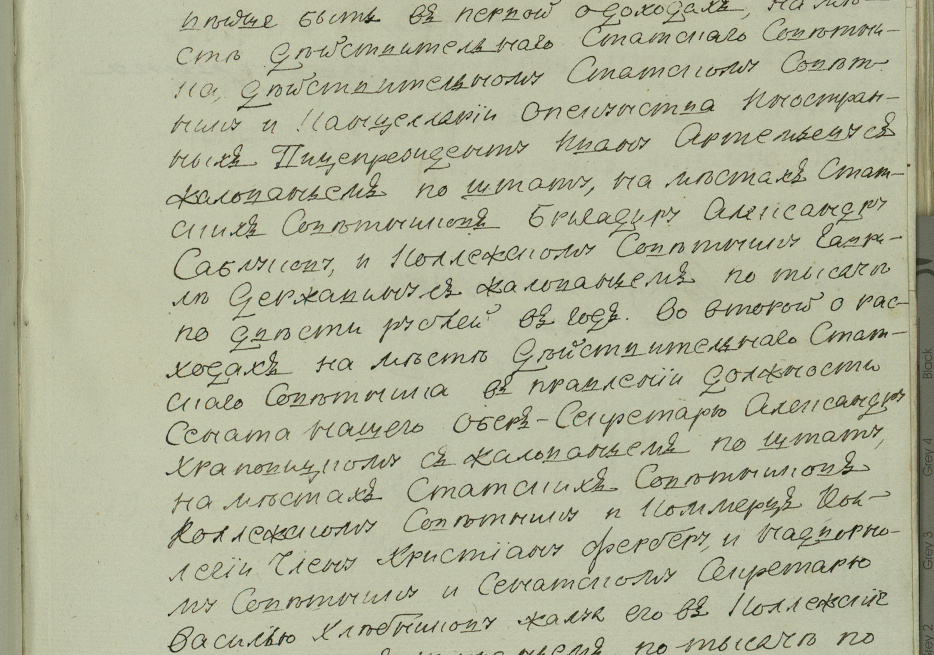 пѣйше быть въ первой о доходахъ, на мѣ-
стѣ дѣйствительнаго Статскаго Совѣтни-
ка, дѣйствительному Статскому Совѣт-
нику и Канцелляріи Опекунства Иностран-
ныхъ Вицепрезиденту Ивану Артемьеву съ
жалованьемъ по штату, на мѣстахъ Стат-
скихъ Совѣтниковъ Бригадиру Александру
Саблукову, и Коллежскому Совѣтнику Гаври-
лѣ Державину съ жалованьемъ по тысячѣ
по двѣсти рублей въ годъ. Во второй о рас-
ходахъ на мѣстѣ дѣйствительнаго Стат-
скаго Совѣтника въ правленіи должности
Сената нашего Оберъ-Секретарю Александру
Храповицкому съ жалованьемъ по штату,
на мѣстахъ Статскихъ Совѣтниковъ
Коллежскому Совѣтнику и Коммерцъ Кол-
легіи Члену Христіану Ферберу, и надворно-
му Совѣтнику и Сенатскому Секретарю
Василью Хлѣбникову жалуя его въ Коллежскіе
жалованьемъ по тысячѣ по